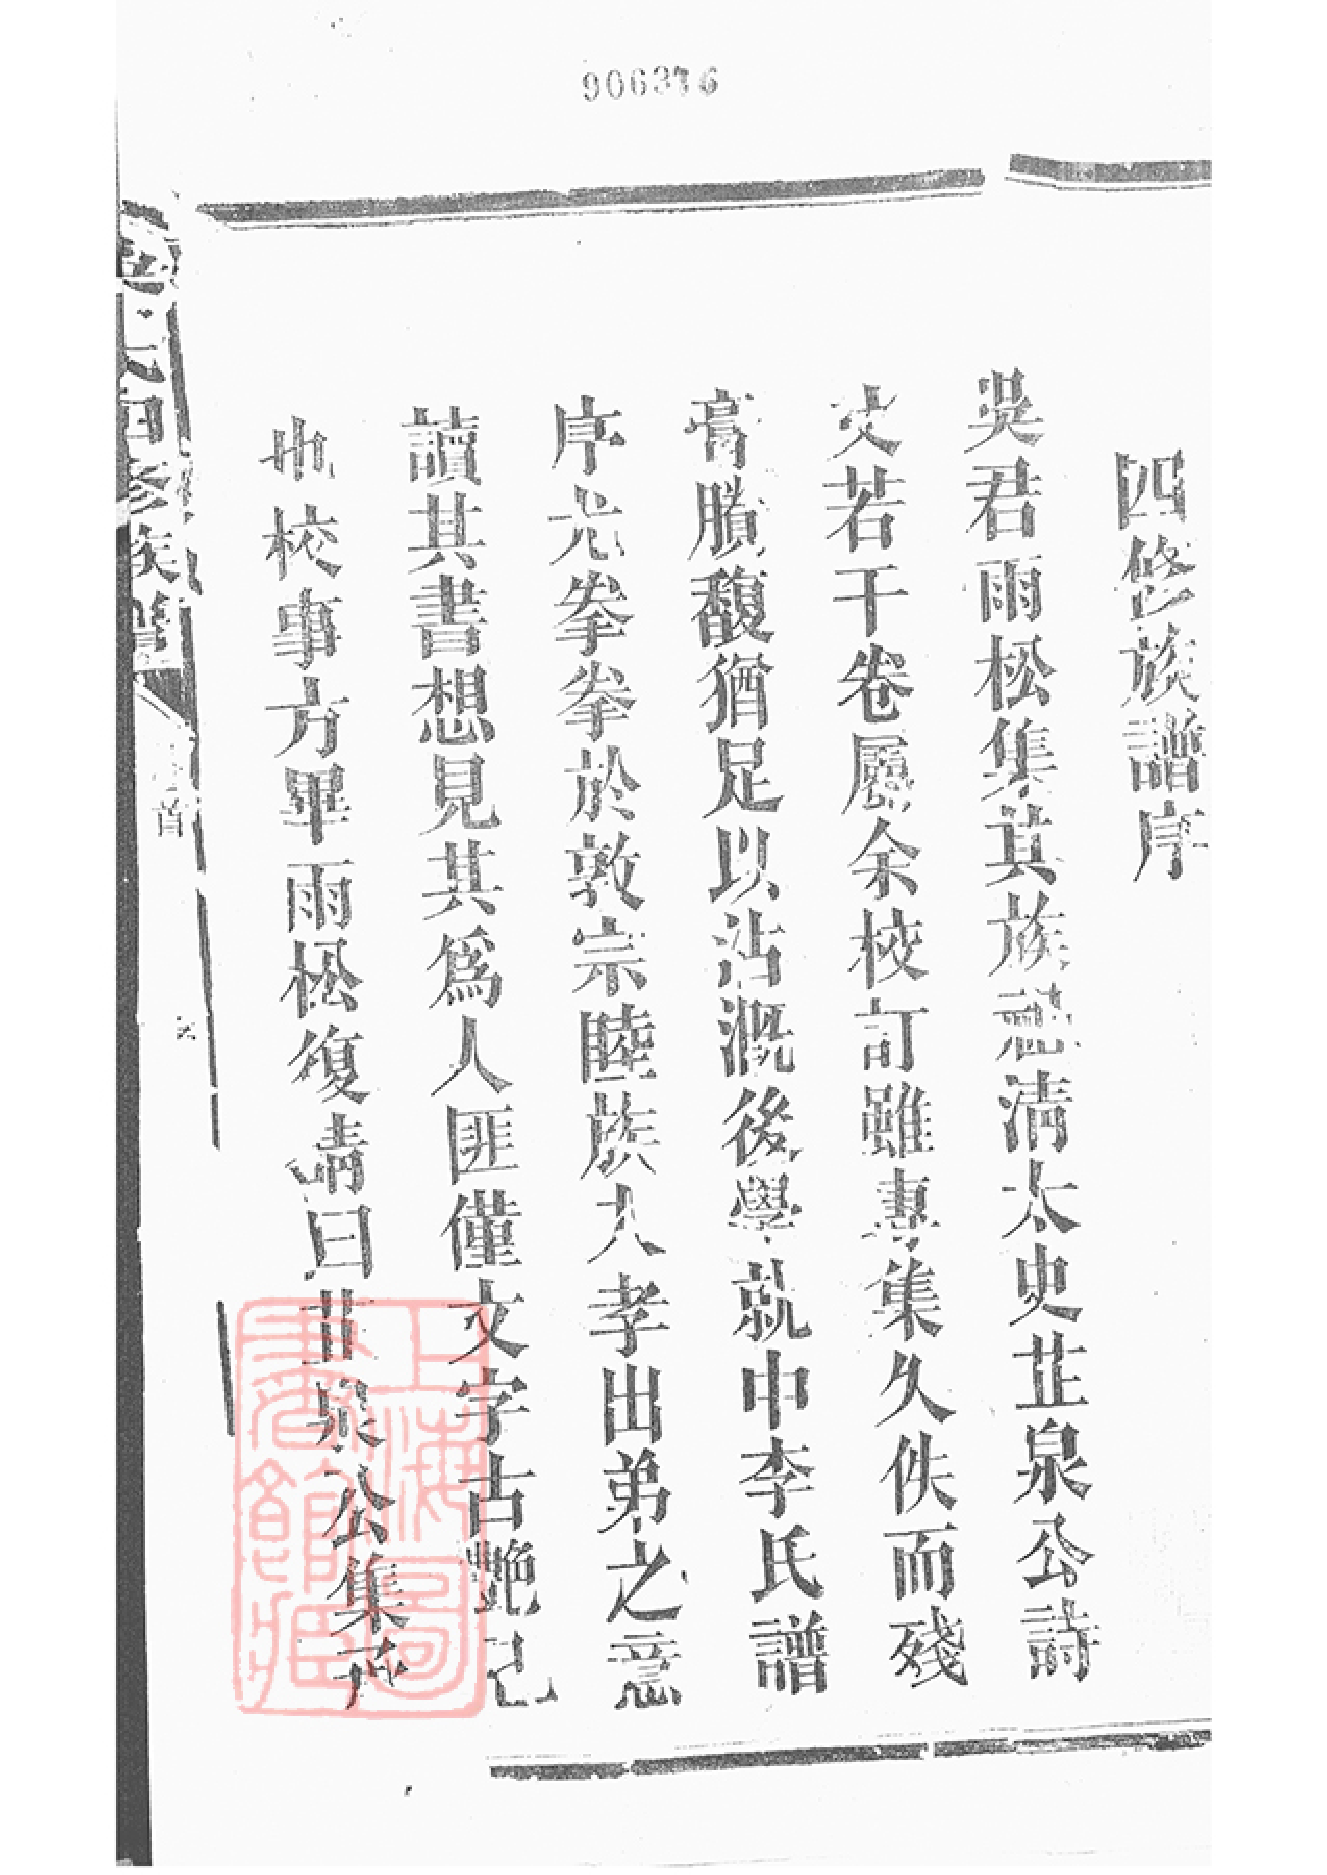 906376
四修族譜序
吳君雨松集其族懋清太史芷泉公詩
文若干卷屬余校訂雖專集久佚而殘
膏賸馥猶足以沾溉後學就中李氏譜
序尤拳拳於敦宗睦族入孝出弟之意
讀其書想見其爲人匪僅文字古艷已
也校事方畢雨松復請曰芷泉公集所
氏四修族譜
首
上海圖書館藏